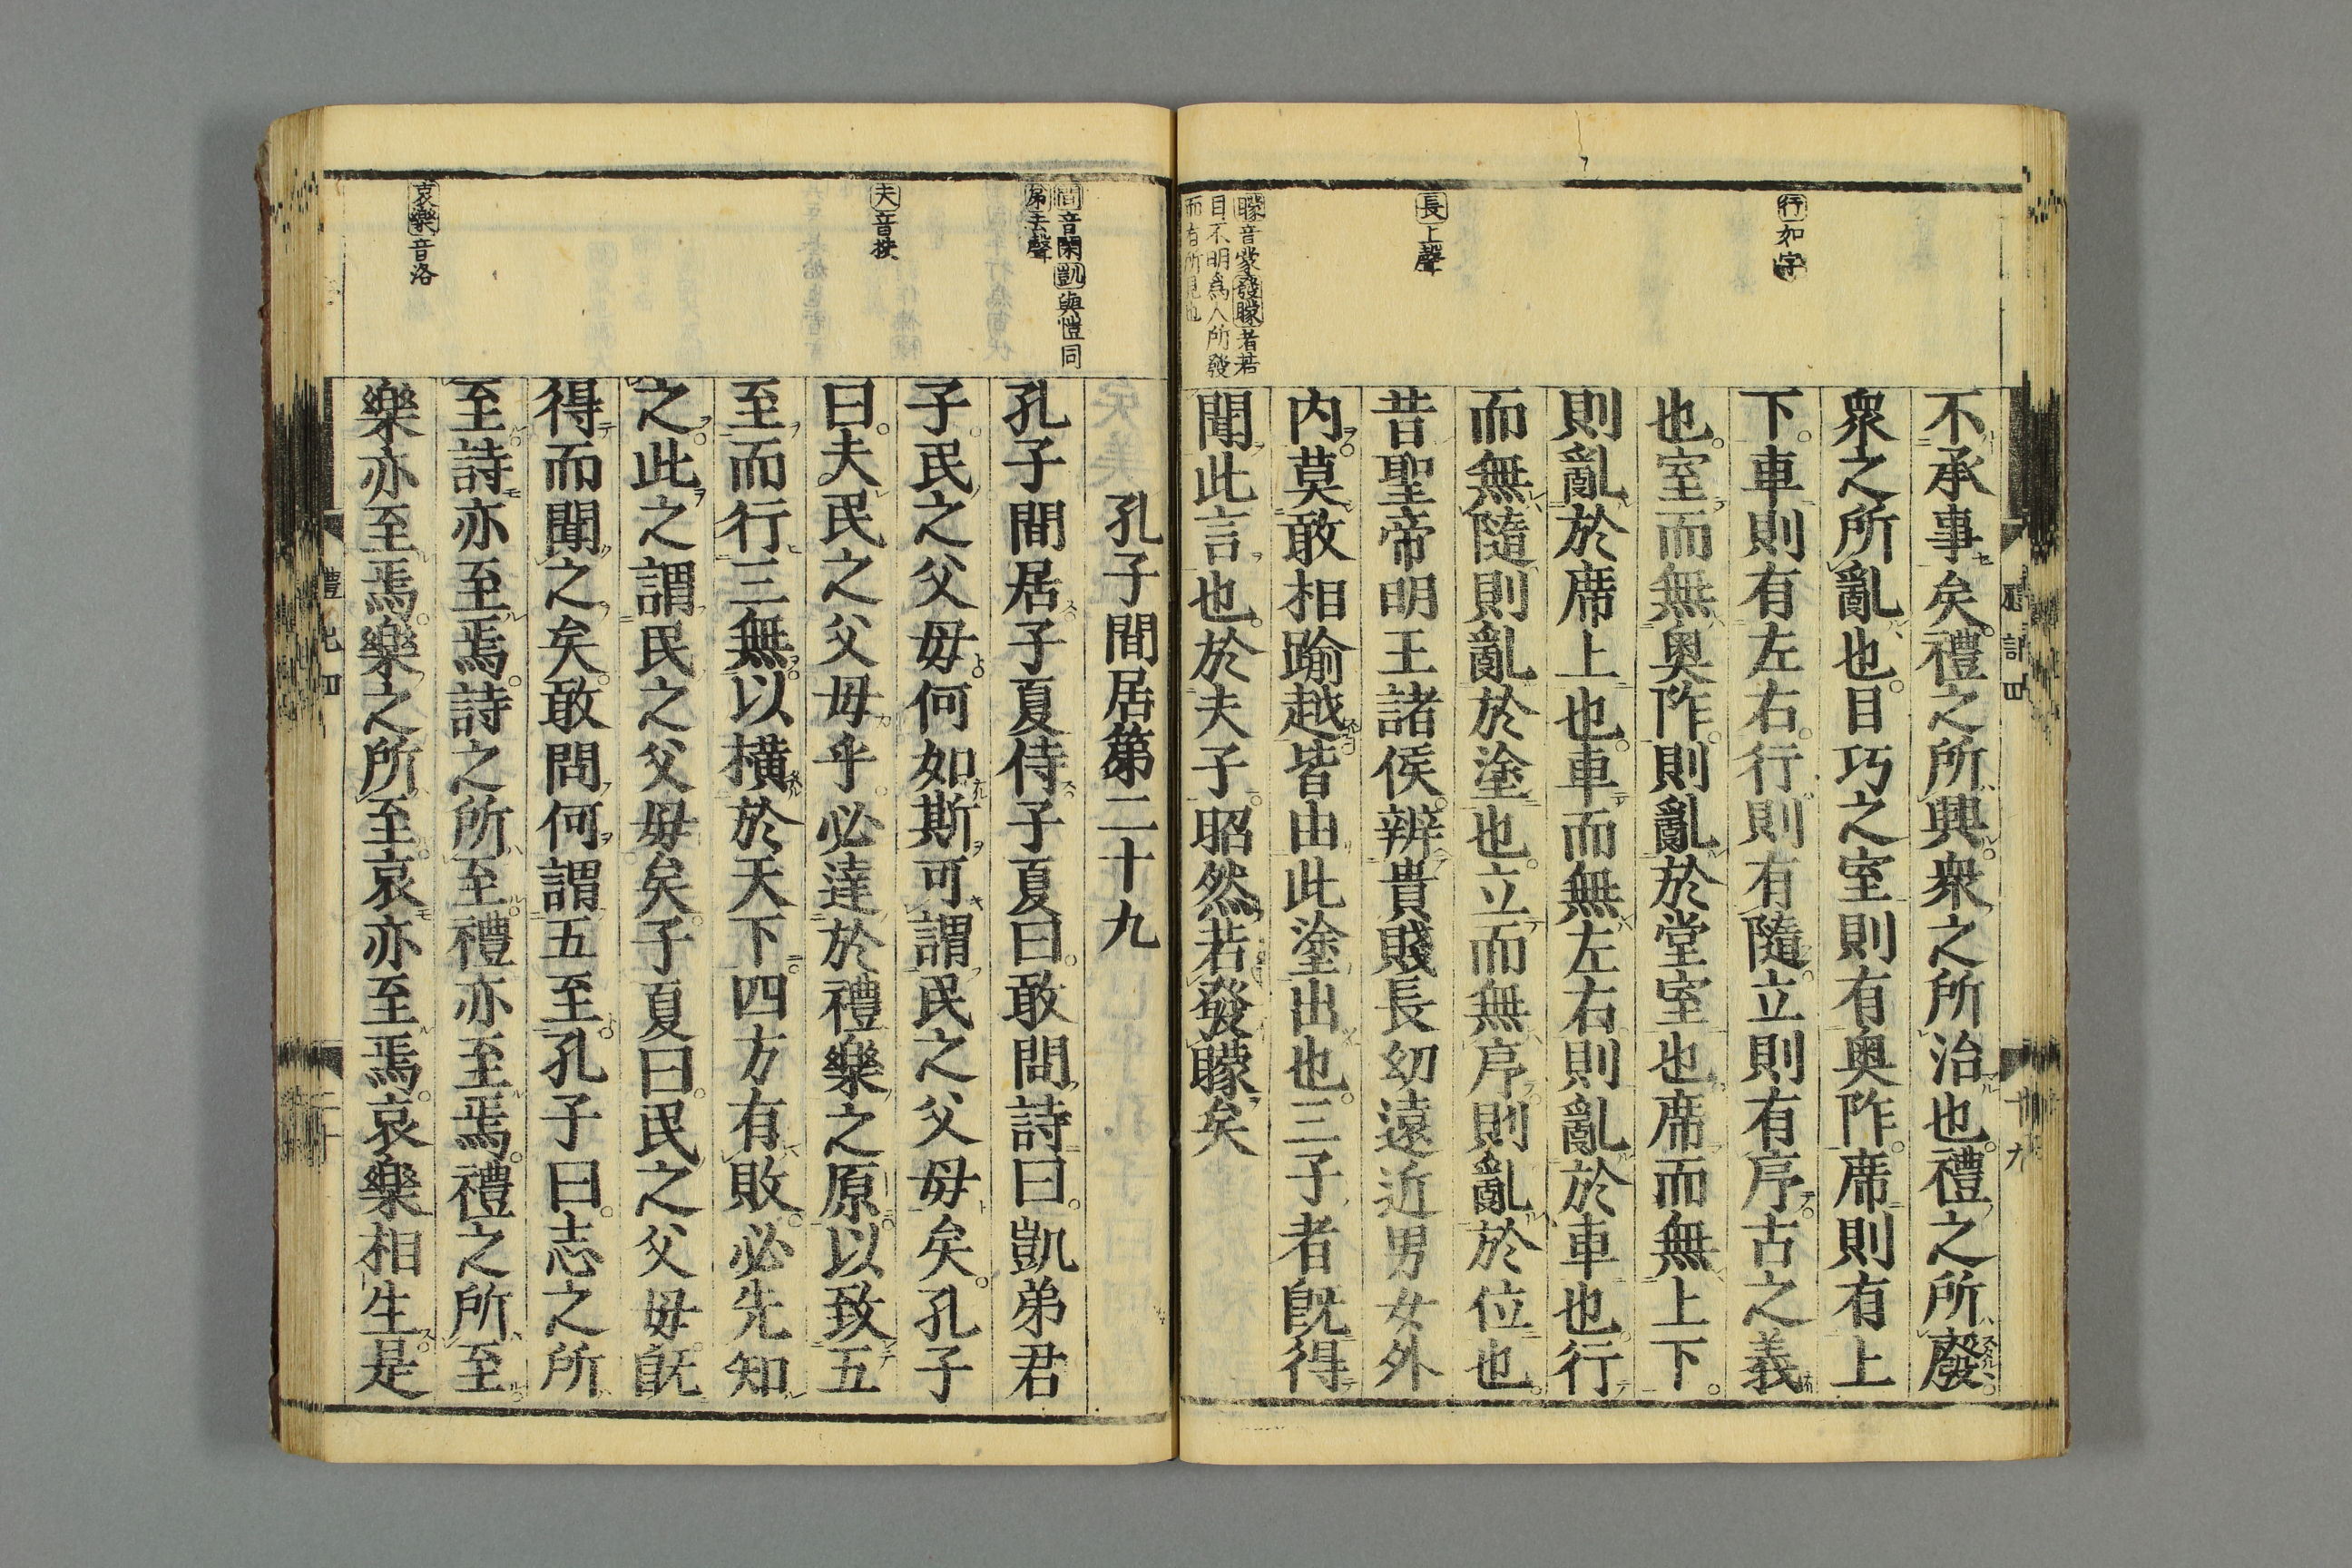 行如字
長上聲
矇音蒙發矇者若
目不明爲人所發
而有所見也
不承事矣禮之所興衆之所治也禮之所廢
衆之所亂也目巧之室則有奥阼席則有上
下車則有左右行則有隨立則有序古之義
也室而無奥阼則亂於堂室也席而無上下
則亂於席上也車而無左右則亂於車也行
而無隨則亂於塗也立而無序則亂於位也
昔聖帝明王諸侯辨貴賤長幼遠近男女外
内莫敢相踰越皆由此塗出也三子者既得
聞此言也於夫子昭然若發矇矣
間音閑凱與愷同
弟去聲
夫音扶
哀樂音洛
孔子間居第二十九
孔子間居子夏侍子夏曰敢問詩曰凱弟君
子民之父毋何如斯可謂民之父毋矣孔子
曰夫民之父毋乎必達於禮樂之原以致五
至而行三無以橫於天下四方有敗必先知
之此之謂民之父毋矣子夏曰民之父毋既
得而聞之矣敢問何謂五至孔子曰志之所
至詩亦至焉詩之所至禮亦至焉禮之所至
樂亦至焉樂之所至哀亦至焉哀樂相生是